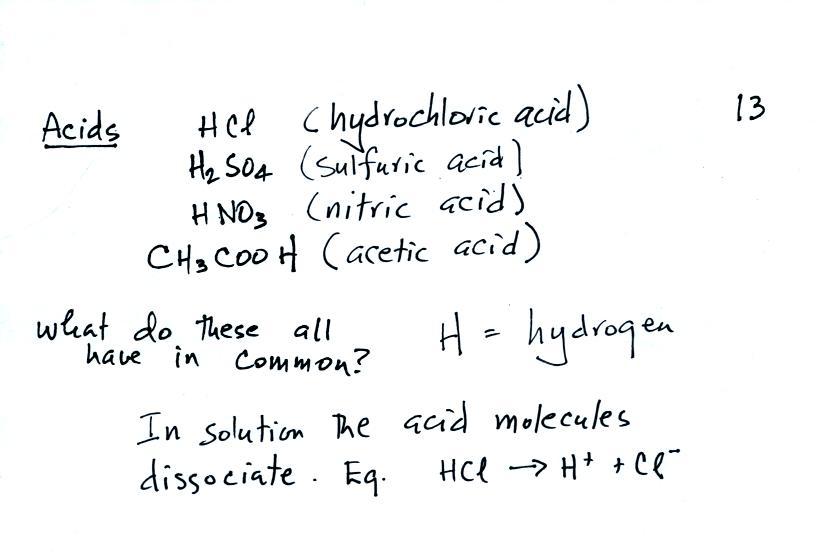 Acids HCl (hydrochloric acid) 13
H₂SO₄ (sulfuric acid)
HNO₃ (nitric acid)
CH₃COOH (acetic acid)
What do these all H = hydrogen
have in common?
In solution the acid molecules
dissociate. Eg. HCl → H⁺ + Cl⁻